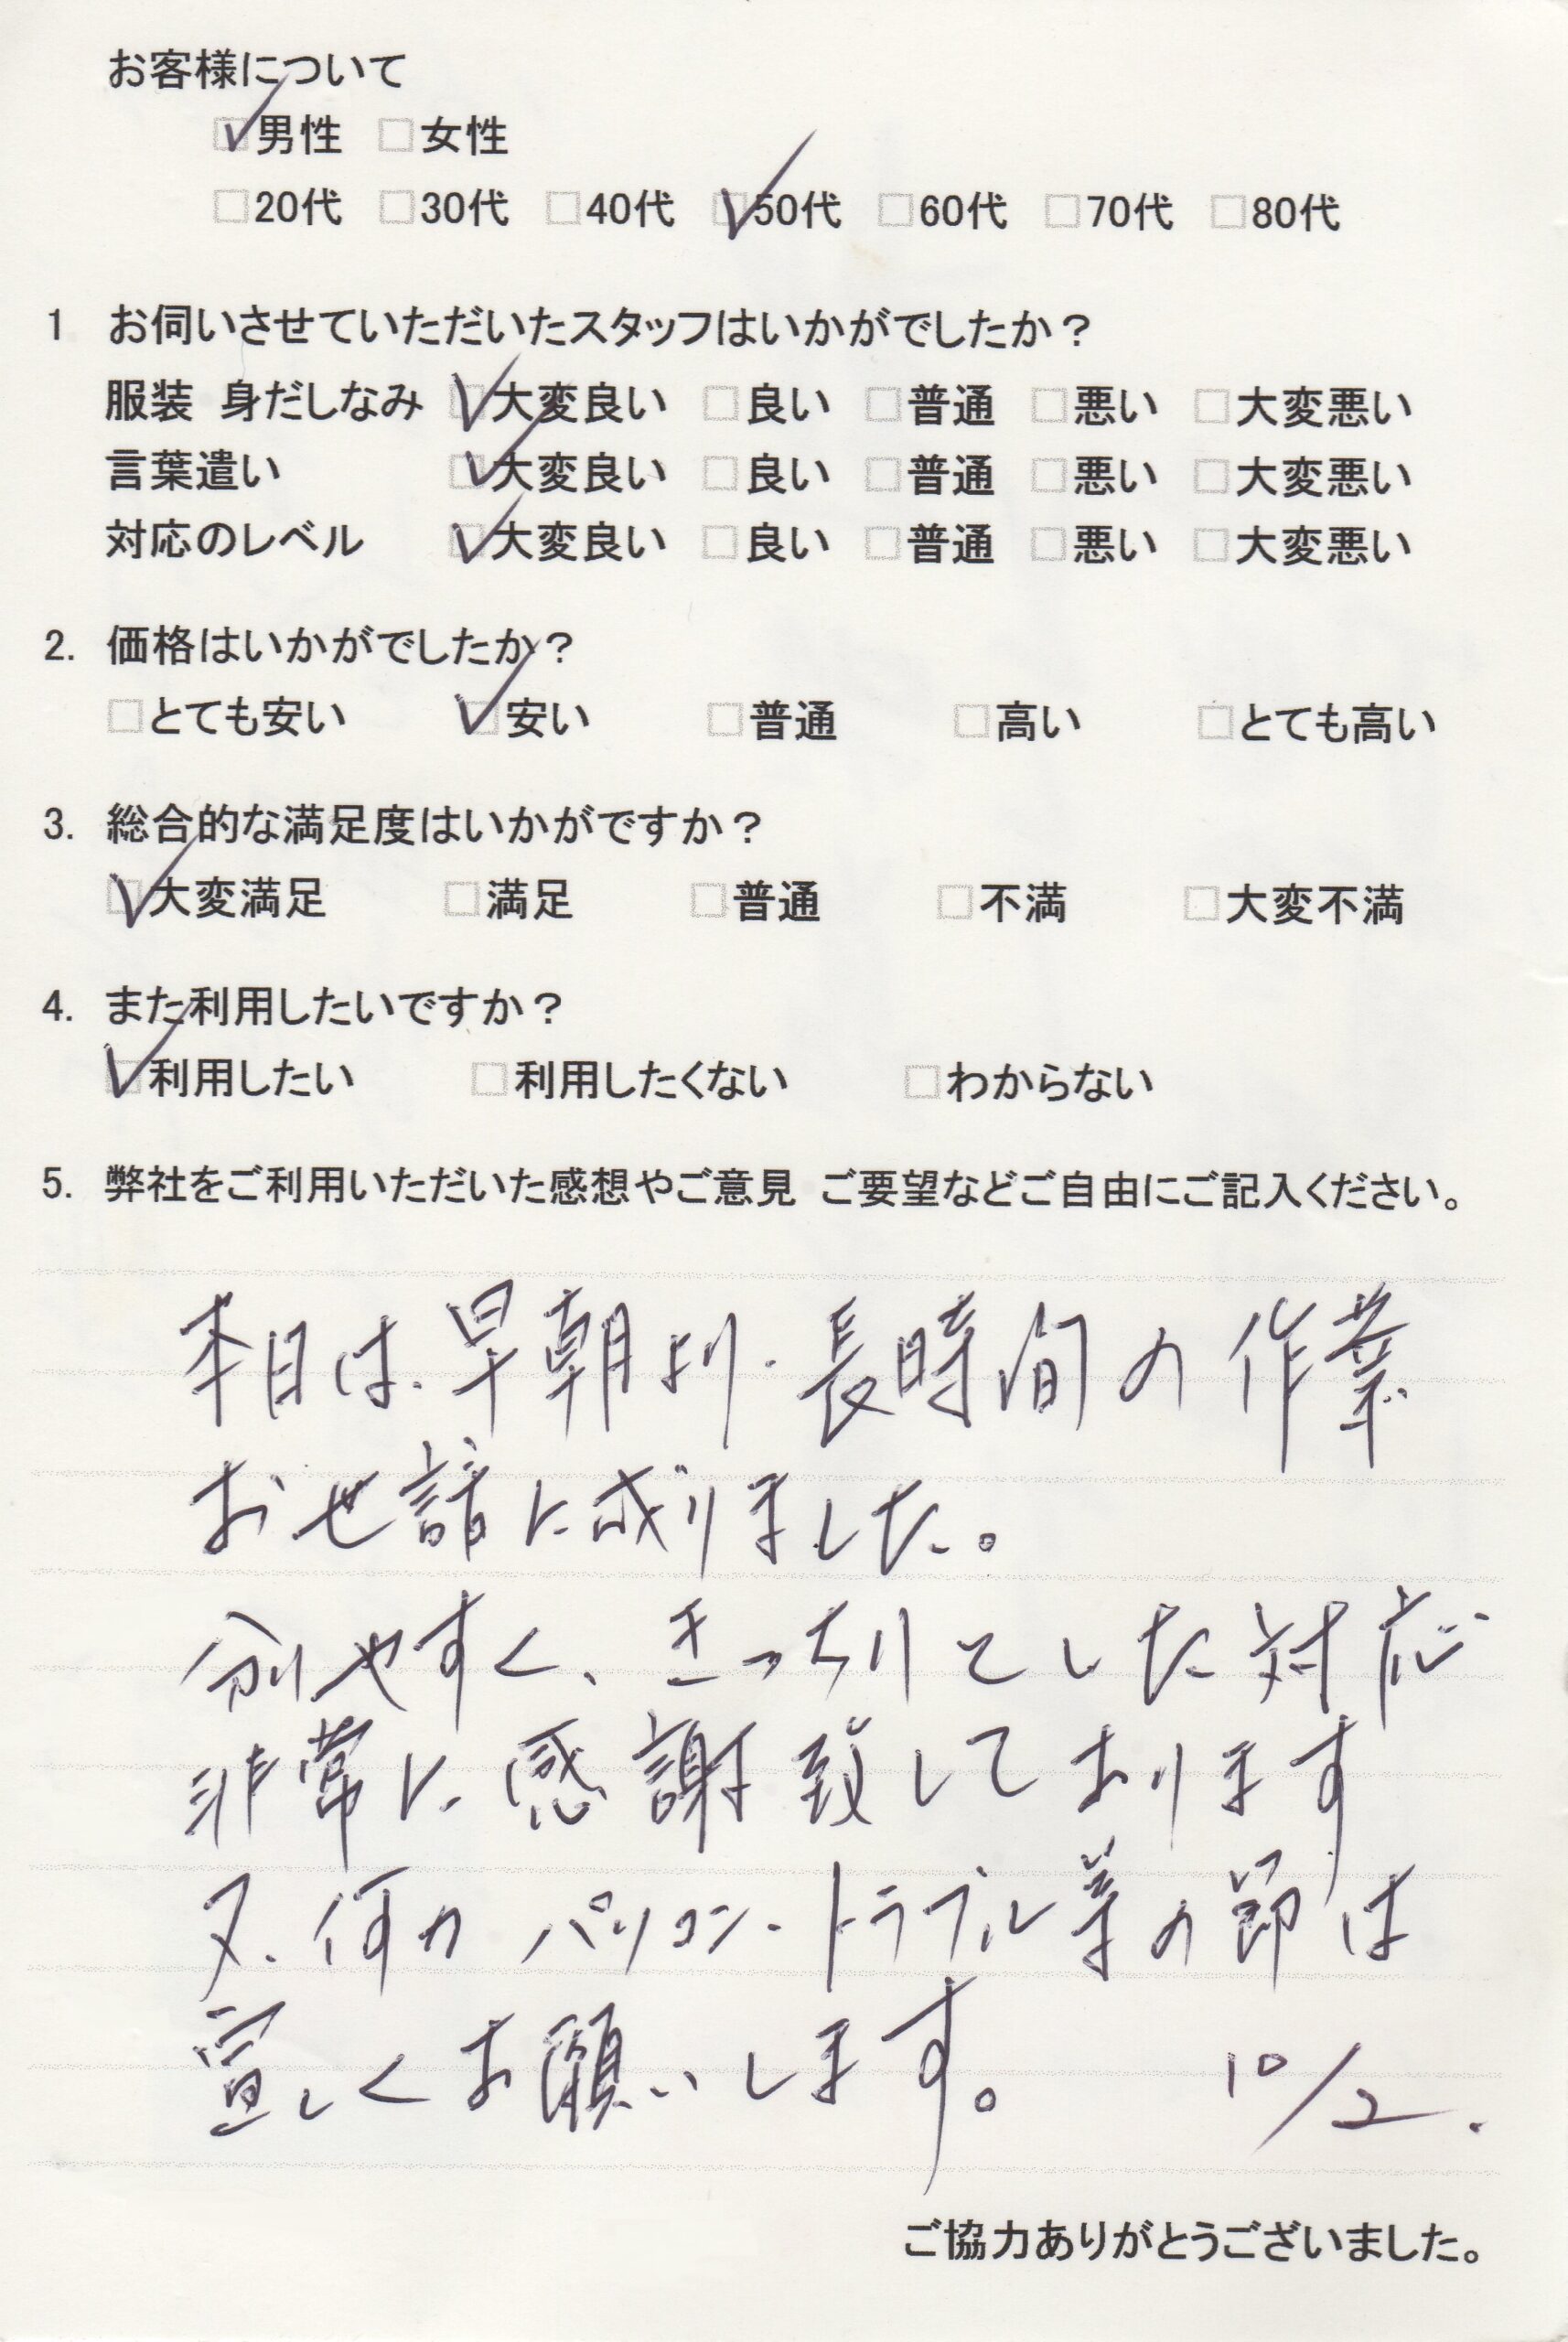 お客様について
☑男性 □女性
□20代 □30代 □40代 ☑50代 □60代 □70代 □80代
1 お伺いさせていただいたスタッフはいかがでしたか？
服装 身だしなみ ☑大変良い □良い □普通 □悪い □大変悪い
言葉遣い ☑大変良い □良い □普通 □悪い □大変悪い
対応のレベル ☑大変良い □良い □普通 □悪い □大変悪い
2. 価格はいかがでしたか？
□とても安い ☑安い □普通 □高い □とても高い
3. 総合的な満足度はいかがですか？
☑大変満足 □満足 □普通 □不満 □大変不満
4. また利用したいですか？
☑利用したい □利用したくない □わからない
5. 弊社をご利用いただいた感想やご意見 ご要望などご自由にご記入ください。
本日は、早朝より、長時間の作業
お世話に成りました。
分りやすく、きっちりとした対応
非常に感謝致しております
又、何か パソコン・トラブル等の節は
宜しくお願いします。 10/2.
ご協力ありがとうございました。